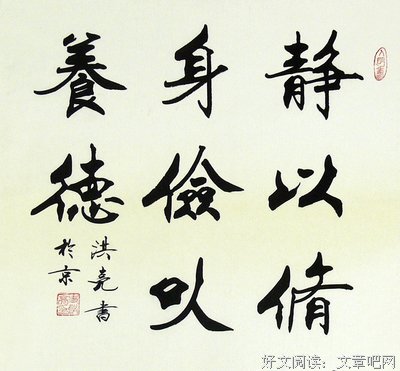 静以脩
身儉以
養德
洪亮書
於京
好文阅读：文章吧网